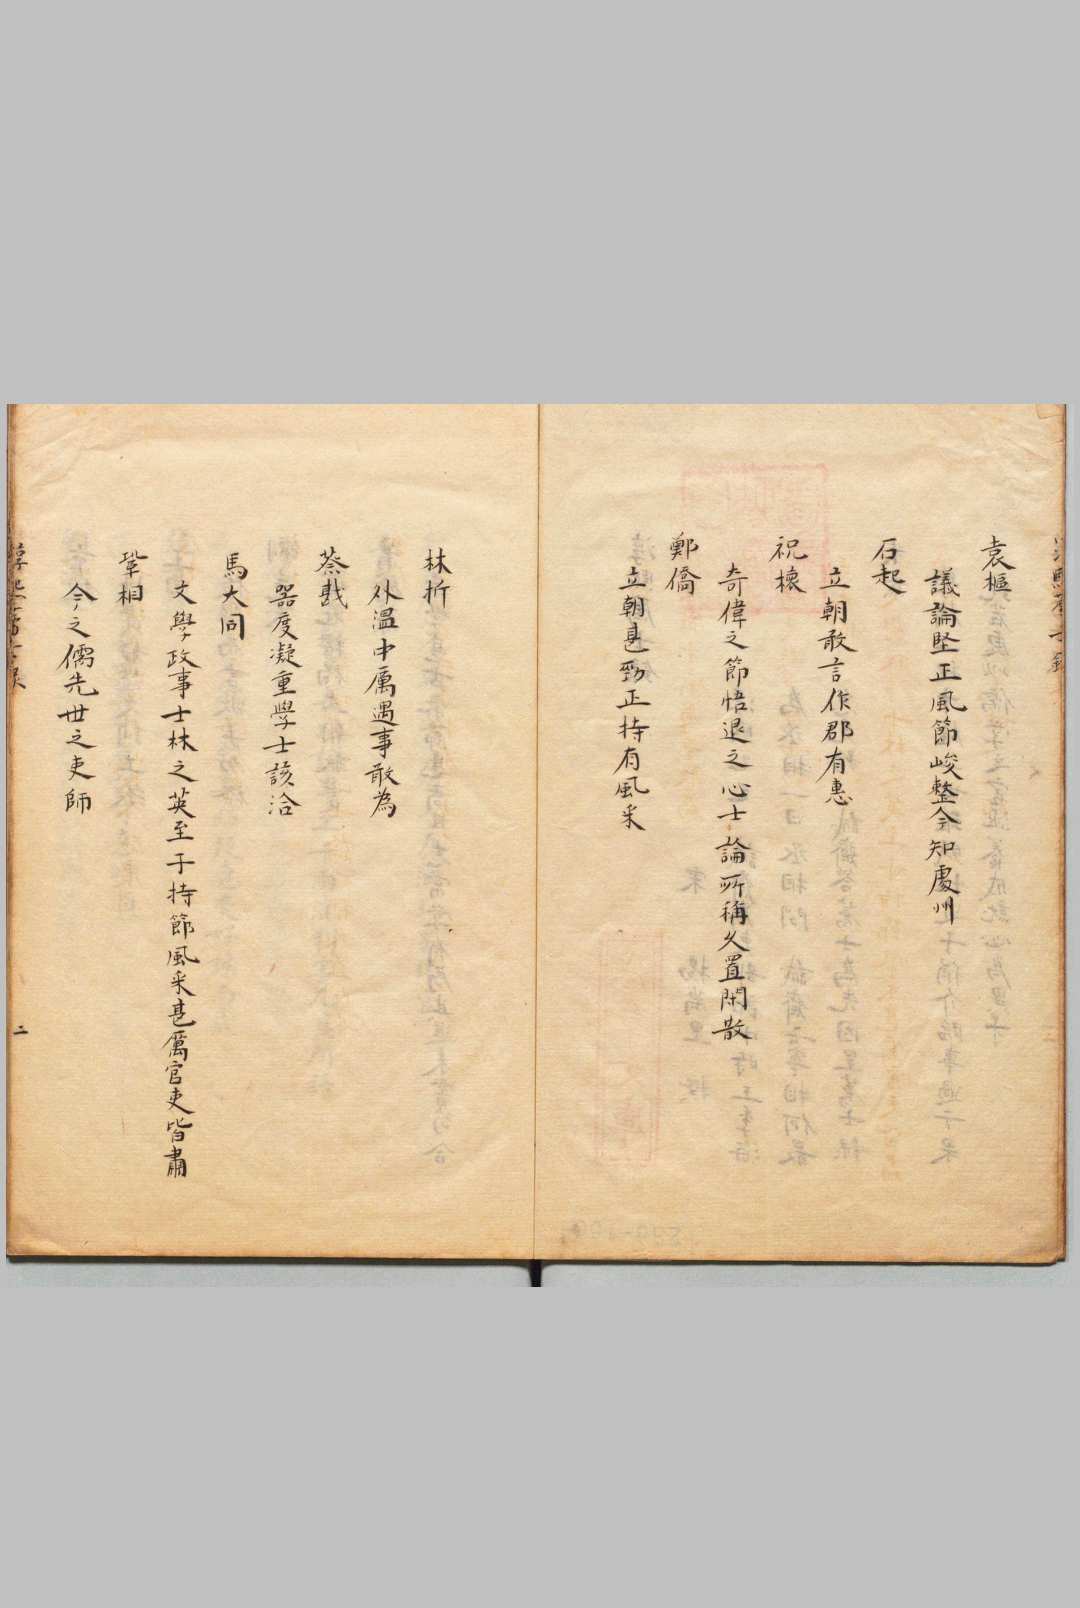 袁樞
議論堅正風節峻整今知處州
石起
立朝敢言作郡有惠
祝櫰
奇偉之節悟退之心士論所稱久置閑散
鄭僑
立朝甚勁正持有風采
林折
外温中厲遇事敢為
蔡戡
器度凝重學士該洽
馬大同
文學政事士林之英至于持節風采甚厲官吏皆肅
鞏相
今之儒先世之吏師
淳熙薦士录
二